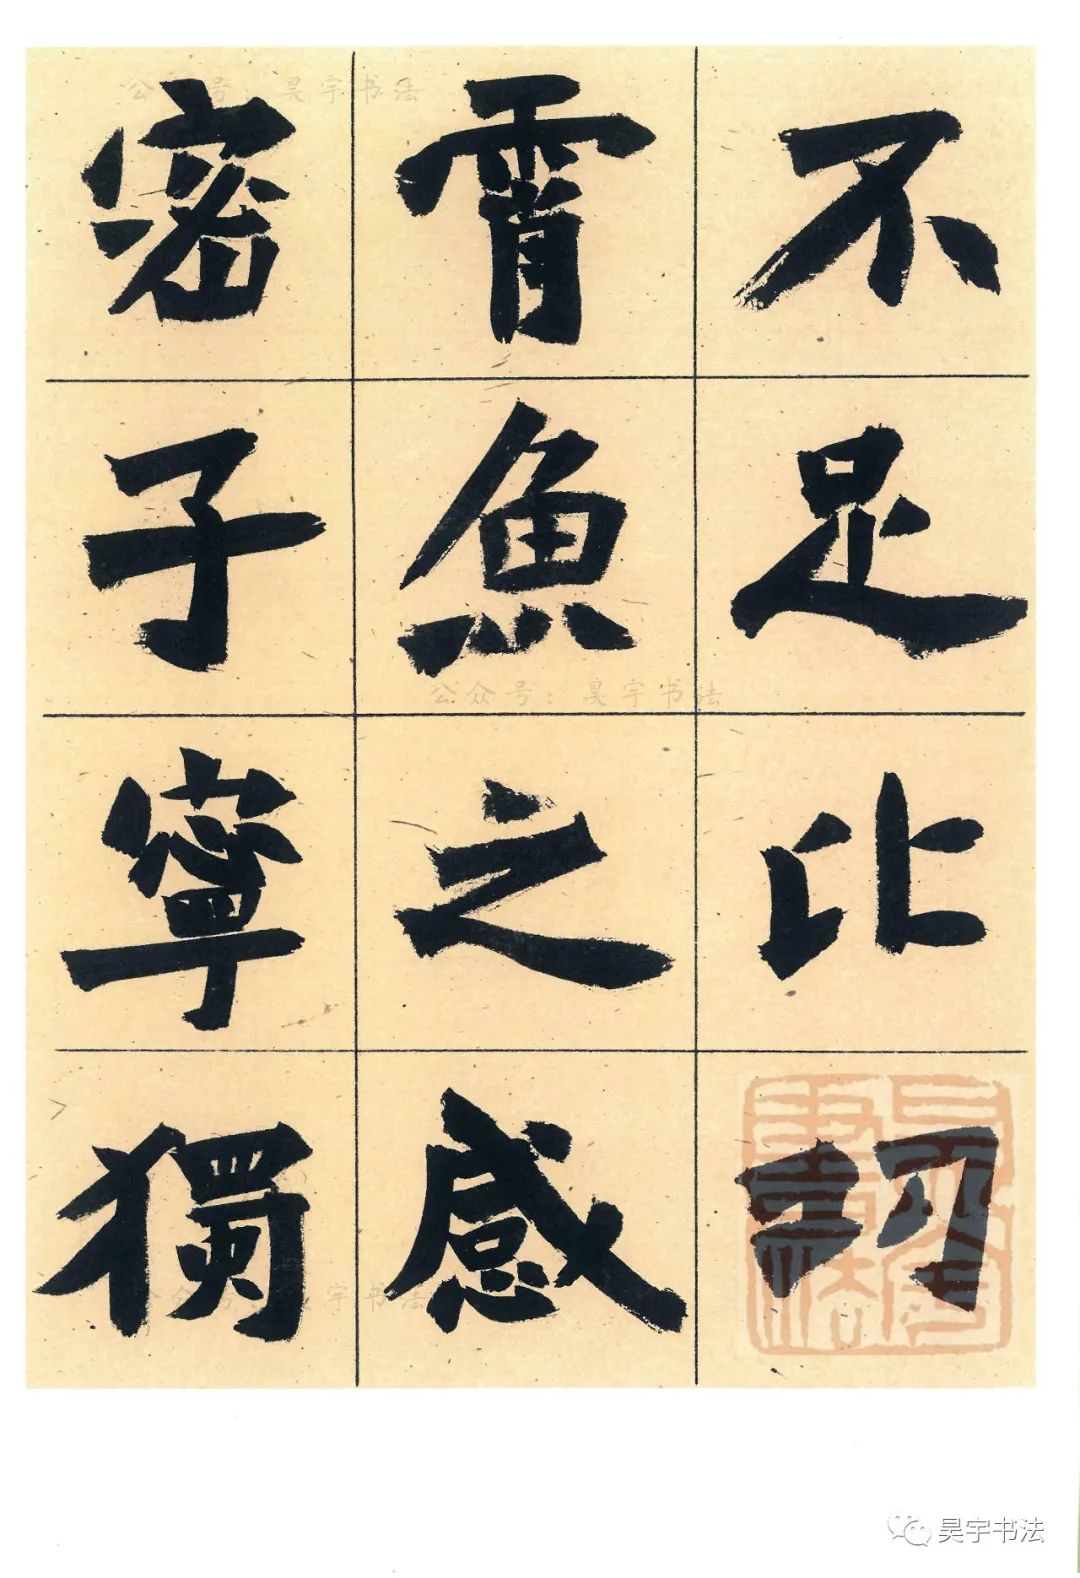 不足比功
霄魚之感
密子寧獨
公众号：昊宇书法
公众号：昊宇书法
公众号：昊宇书法
昊宇書法
昊宇书法